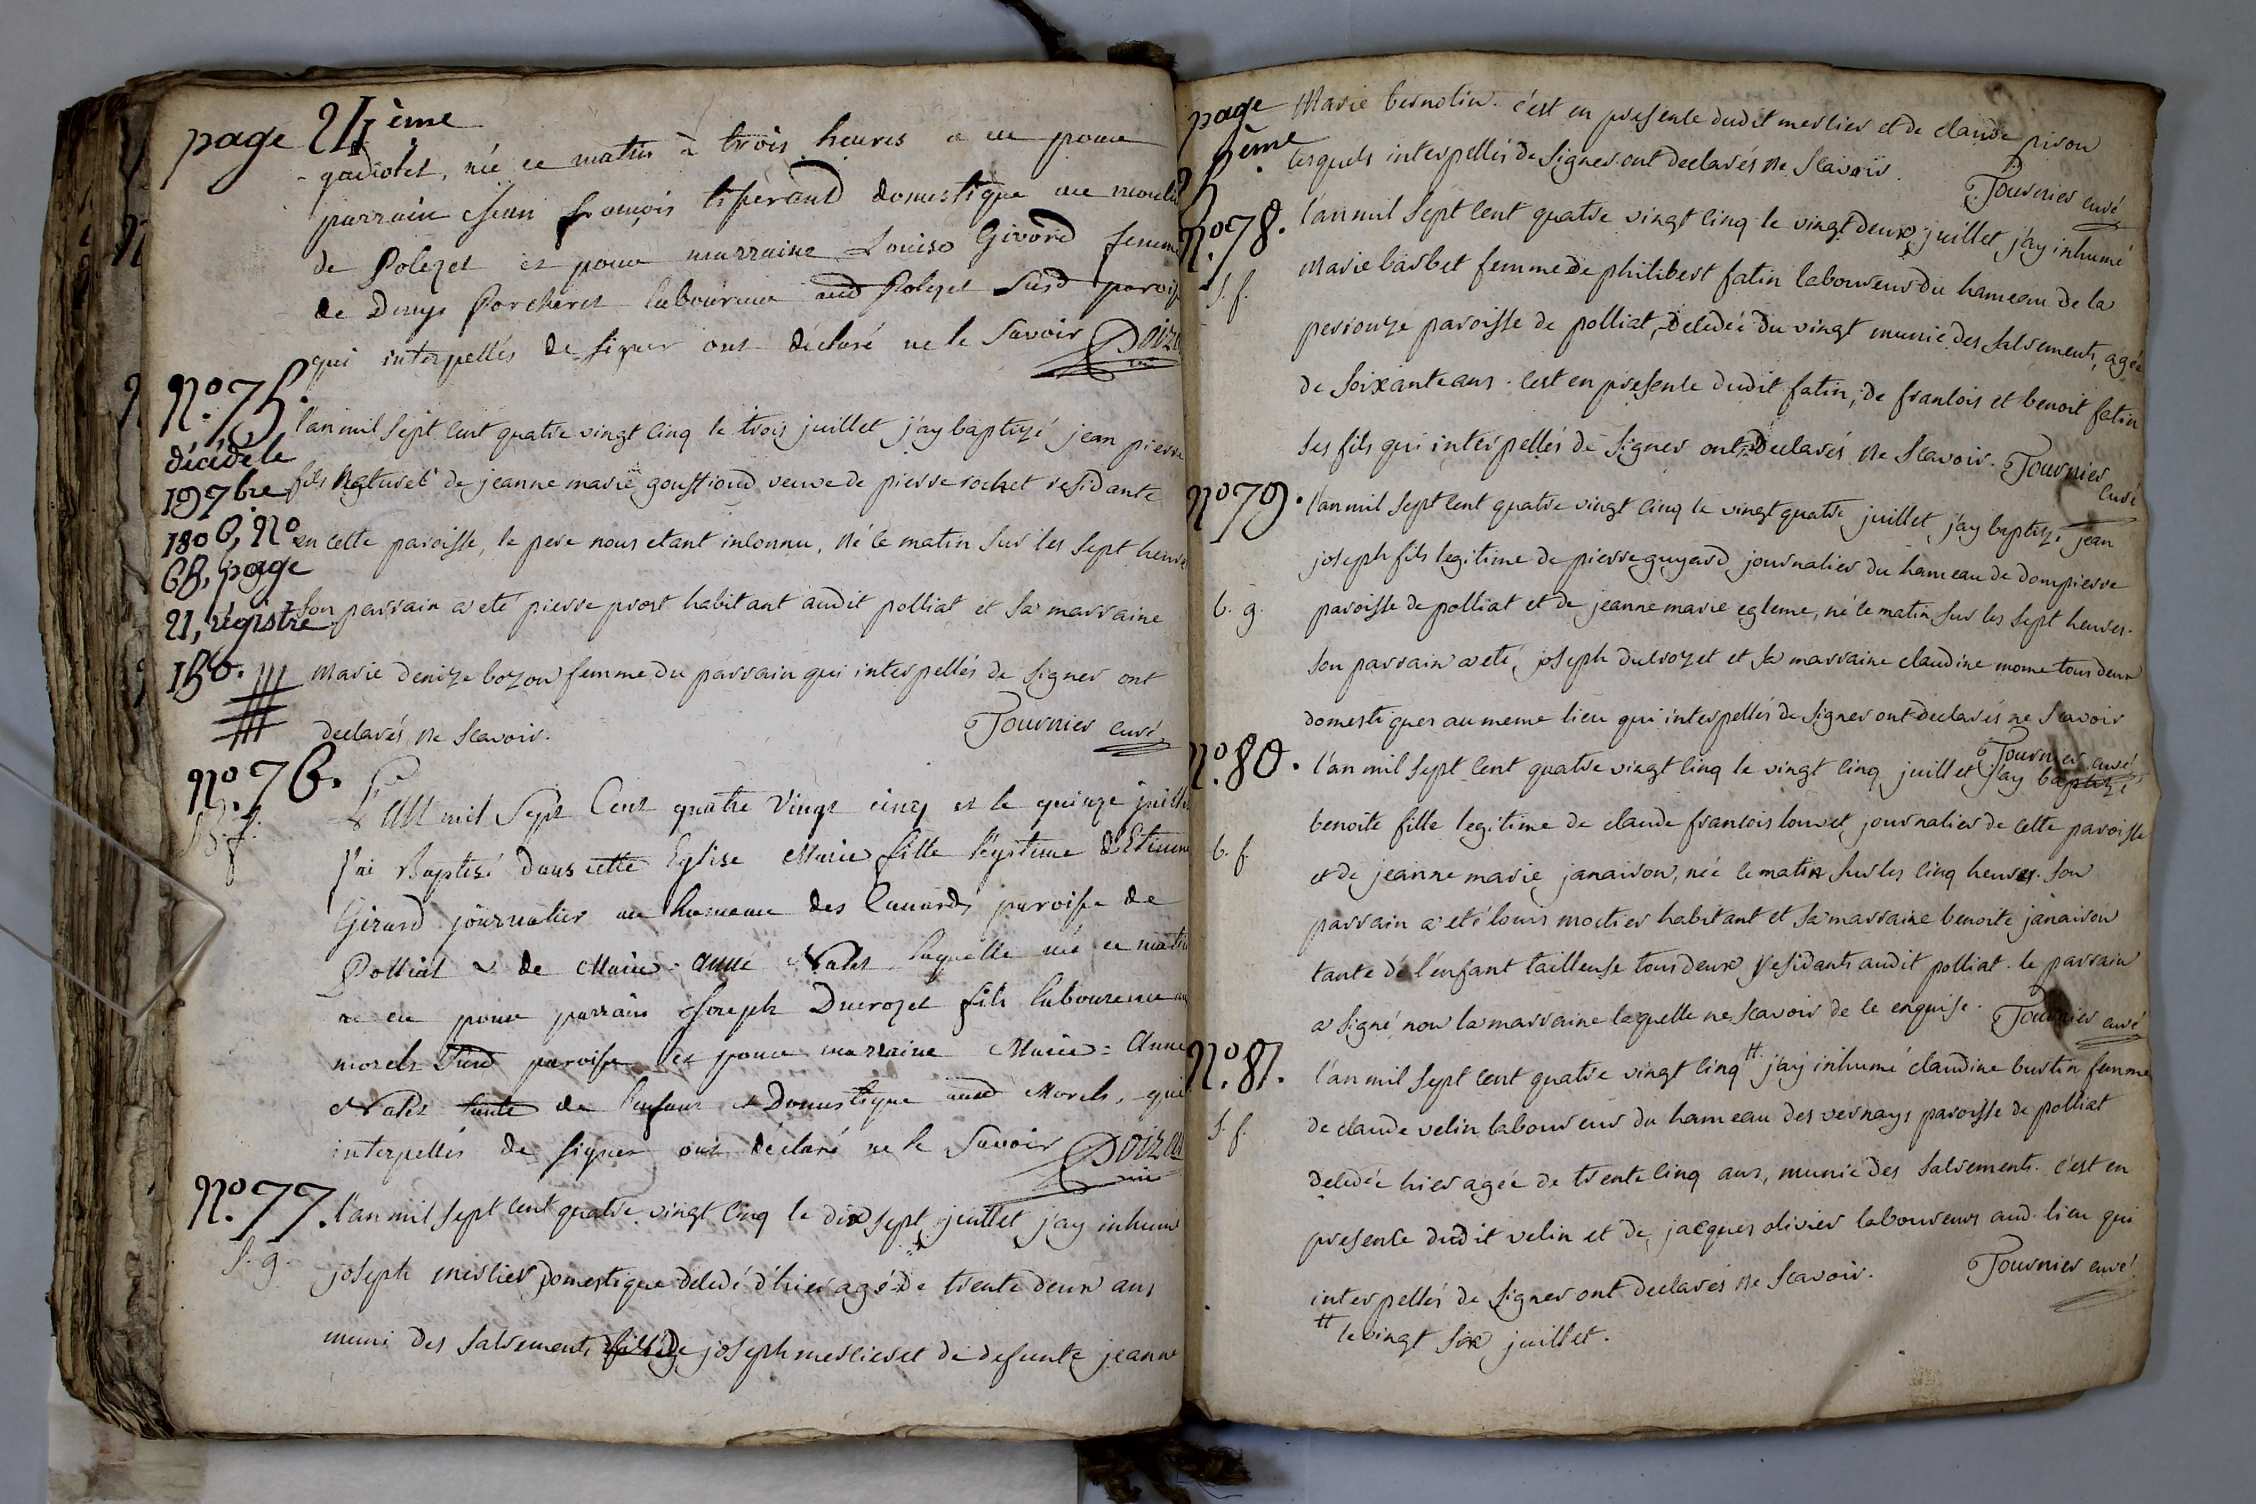 page 24ème
gadiolet, née ce matin à trois heures a eu pour
parrain Jean françois tisserand domestique au moulin
de Polezet et pour marraine Louise Givord femme
de Denys Porcheret laboureur aud Polezet susd paroisse
qui interpellés de signer ont déclaré ne le savoir
No. 75.
l'an mil sept cent quatre vingt cinq le trois juillet j'ay baptizé jean pierre
décédé le
fils naturel de jeanne marie goustioud veuve de pierre rochet residante
19 7bre
1806, No
en cette paroisse, le pere nous etant inconnu, né ce matin sur les sept heures
68, page
21, régistre
son parrain a eté pierre prost habitant audit polliat et sa marraine
156.
marie denize bozon femme du parrain qui interpellés de signer ont
declarés ne scavoir. Tournier curé
No. 76.
L'an mil sept Cent quatre Vingt cinq et le quinze juillet
b. f.
j'ai Baptisé dans cette Eglise Marie fille legitime d'Etienne
Girard journalier au hameau des Canards paroisse de
Polliat & de Marie=Anne Nalet laquelle née ce matin
a eu pour parrain Joseph Ducrozet fils laboureur au
morels susd paroisse et pour marraine Marie=Anne
Nalet tante de l'enfant et Domestique aud Morels, qui
interpellés de signer ont déclaré ne le savoir
No. 77.
l'an mil sept cent quatre vingt cinq le dix sept juillet j'ay inhumé
s. g.
joseph meslier domestique decedé d'hier agé de trente deux ans
muni des sacrements fils de joseph meslier et de defunte jeanne
page
marie bernolin. c'est en presence dudit meslier et de claude pison
5ème
lesquels interpellés de signer ont declarés ne scavoir. Tournier curé
No. 78.
l'an mil sept cent quatre vingt cinq le vingt deux juillet j'ay inhumé
s. f.
marie barbet femme de philibert fatin laboureur du hameau de la
perouze paroisse de polliat, decedée du vingt munie des sacrements, agée
de soixante ans. c'est en presence dudit fatin, de francois et benoit fatin
ses fils qui interpellés de signer ont declarés ne scavoir. Tournier curé
No 79.
l'an mil sept cent quatre vingt cinq le vingt quatre juillet j'ay baptizé jean
joseph fils legitime de pierre guyard journalier du hameau de dompierre
b. g.
paroisse de polliat et de jeanne marie egleme, né ce matin sur les sept heures.
son parrain a eté joseph ducrozet et sa marraine claudine mome tous deux
domestiques au meme lieu qui interpellés de signer ont declarés ne scavoir
Tournier curé
No. 80.
l'an mil sept cent quatre vingt cinq le vingt cinq juillet j'ay baptizé
benoite fille legitime de claude francois louvet journalier de cette paroisse
b. f.
et de jeanne marie janaison, née ce matin sur les cinq heures. son
parrain a eté louis moctier habitant et sa marraine benoite janaison
tante de l'enfant tailleuse tous deux residants audit polliat. le parrain
a signé non la marraine laquelle ne scavoir de ce enquise. Tournier curé
No. 81.
l'an mil sept cent quatre vingt cinq # j'ay inhumé claudine bustin femme
s. f.
de claude velin laboureur du hameau des vernays paroisse de polliat
decedée hier agée de trente cinq ans, munie des sacrements. c'est en
presence dudit velin et de jacques olivier laboureurs aud. lieu qui
interpellés de signer ont declarés ne scavoir. Tournier curé
# le vingt six juillet.